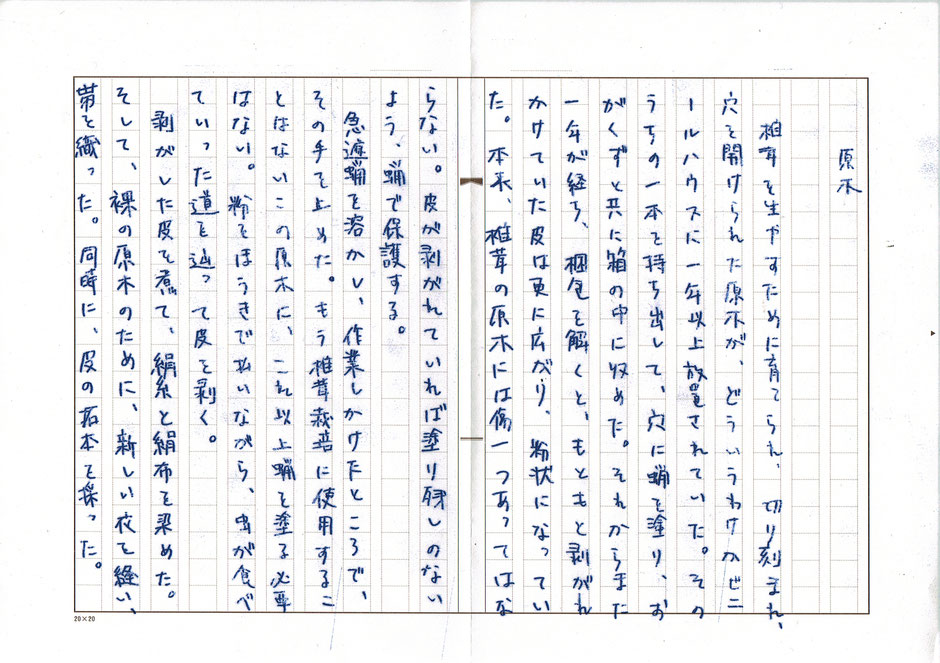 原木
椎茸を生やすために育てられ、切り刻まれ、
穴を開けられた原木が、どういうわけかビニ
ールハウスに一年以上放置されていた。その
うちの一本を持ち出して、穴に蝋を塗り、お
がくずと共に箱の中に収めた。それからまた
一年が経ち、梱包を解くと、もともと剥がれ
かけていた皮は更に広がり、粉状になってい
た。本来、椎茸の原木には傷一つあってはな
らない。皮が剥がれていれば塗り残しのない
よう、蝋で保護する。
急遽蝋を溶かし、作業しかけたところで、
その手を止めた。もう椎茸栽培に使用するこ
とはないこの原木に、これ以上蝋を塗る必要
はない。粉をほうきで払いながら、虫が食べ
ていった道を辿って皮を剥く。
剥がした皮を煮て、絹糸と絹布を染めた。
そして、裸の原木のために、新しい衣を縫い、
帯を織った。同時に、皮の拓本を採った。
20×20